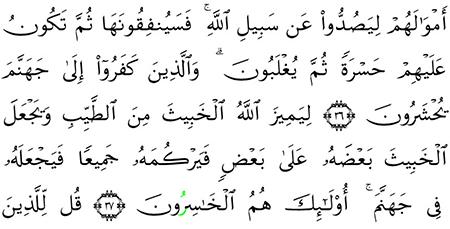 أَمْوَٰلَهُمْ لِيَصُدُّوا۟ عَن سَبِيلِ ٱللَّهِ ۚ فَسَيُنفِقُونَهَا ثُمَّ تَكُونُ
عَلَيْهِمْ حَسْرَةً ثُمَّ يُغْلَبُونَ ۗ وَٱلَّذِينَ كَفَرُوٓا۟ إِلَىٰ جَهَنَّمَ
يُحْشَرُونَ ﴿٣٦﴾ لِيَمِيزَ ٱللَّهُ ٱلْخَبِيثَ مِنَ ٱلطَّيِّبِ وَيَجْعَلَ
ٱلْخَبِيثَ بَعْضَهُۥ عَلَىٰ بَعْضٍ فَيَرْكُمَهُۥ جَمِيعًا فَيَجْعَلَهُۥ
فِى جَهَنَّمَ ۚ أُو۟لَٰٓئِكَ هُمُ ٱلْخَٰسِرُونَ ﴿٣٧﴾ قُل لِّلَّذِينَ